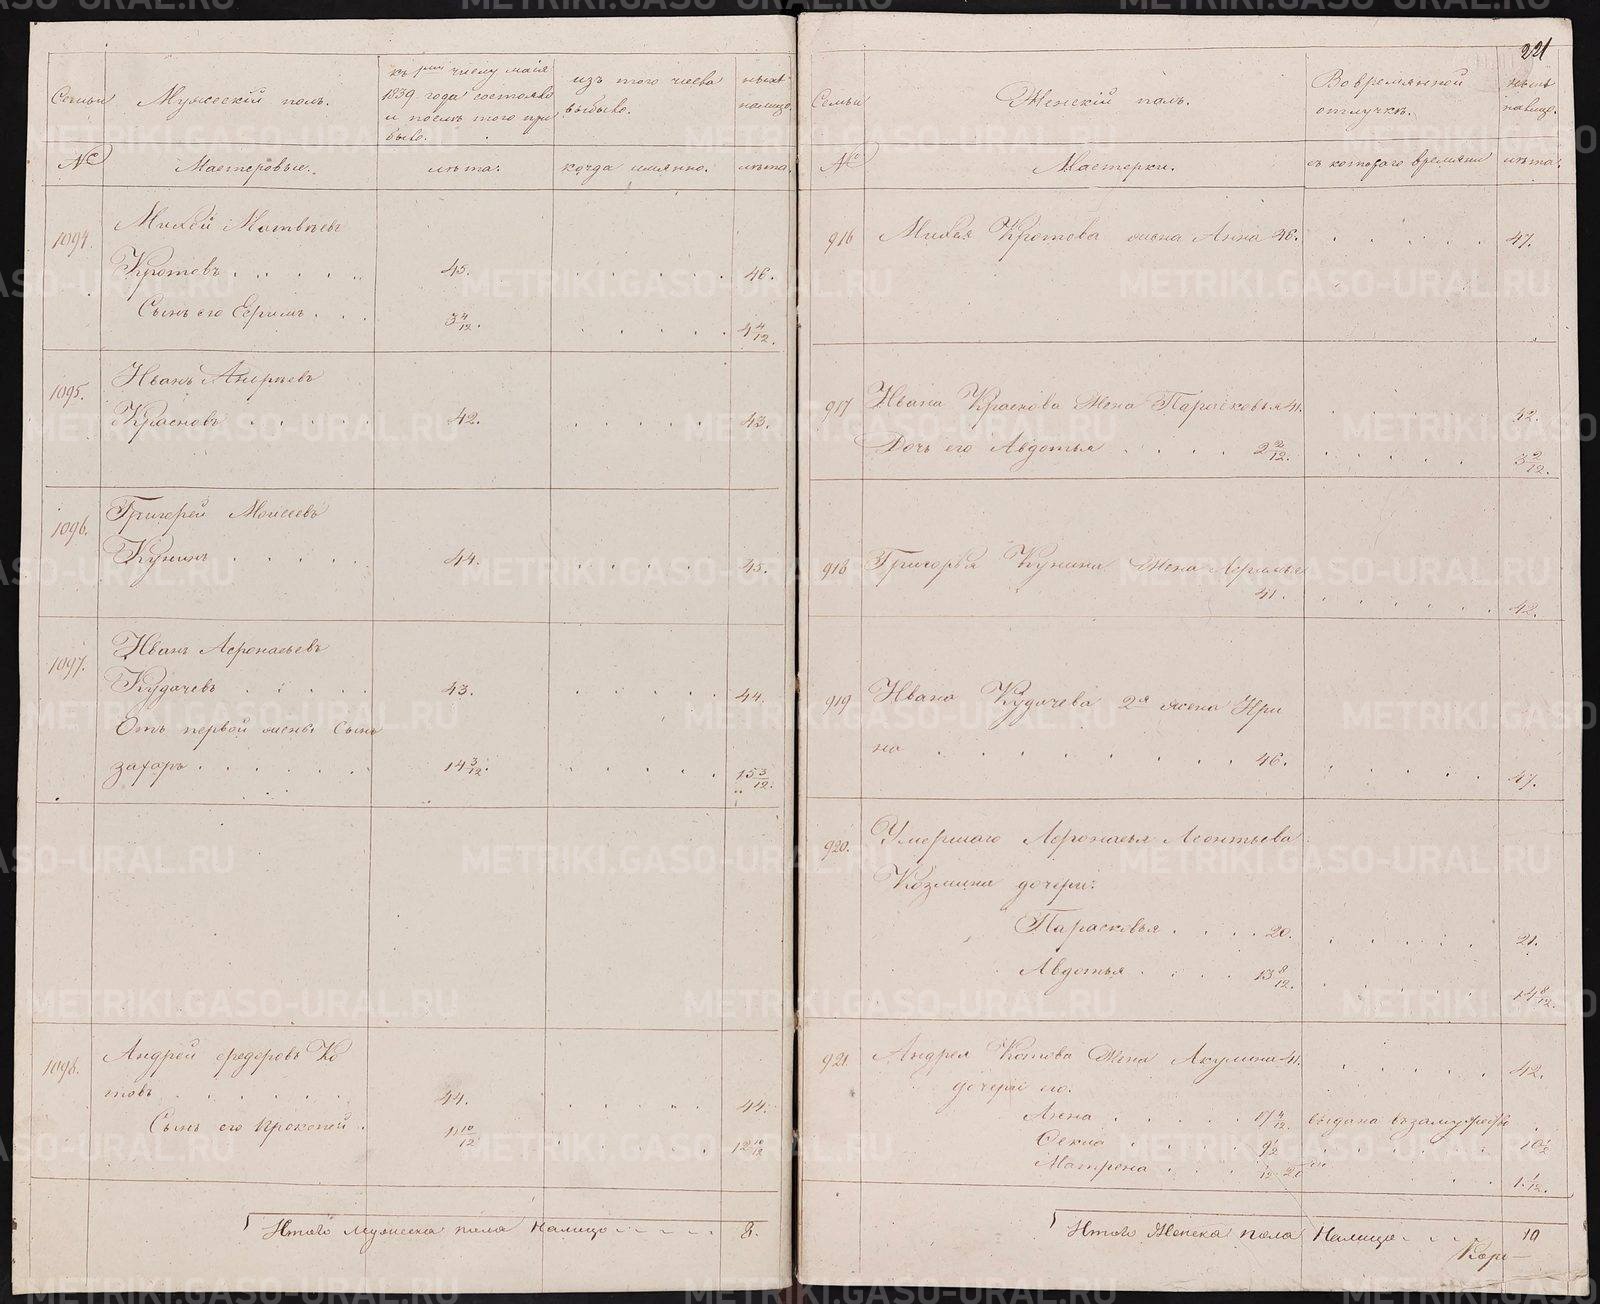 Семьи
Мужескій полъ.
къ чиcлу маія
1839 года состояло
и послѣ того при
было.
изъ того числа
выбыло.
нынѣ
налицо.
№
Мастеровые.
лѣта.
когда имянно.
лѣта.
1094.
Михей Матвѣевъ
Кротовъ . . . . . 45. . . . . . . 46.
Сынъ его Ефимъ . . . 3 4/12. . . . . . 4 4/12.
1095.
Иванъ Андрѣевъ
Красновъ . . . . . 42. . . . . . 43.
1096.
Григорей Моисеевъ
Кунинъ . . . . . 44. . . . . . 45.
1097.
Иванъ Афонасьевъ
Кудачевъ . . . . 43. . . . . . 44.
Отъ первой жены Сынъ
Захаръ . . . . . . 14 3/12. . . . . . 15 3/12.
1098.
Андрей Федоровъ Ко
товъ . . . . . . 44. . . . . . 44.
Сынъ его Прокопей . 11 10/12 . . . . . 12 10/12
Итого мужеска пола налицо . . . . . 8.
221
Семьи
Женскій полъ.
Во времянной
отлучкѣ.
нынѣ
налицо.
№
Мастерки.
съ котораго времяни
лѣта.
916 Михея Кротова жена Анна 46. . . . . . 47.
917 Ивана Краснова Жена Парасковья 41. . . . . . 42.
Дочь его Авдотья . . . . 2 2/12. . . . . . 3 2/12.
918 Григорья Кунина Жена
41. . . . . . . 42.
919 Ивана Кудачева 2я жена Ири
на . . . . . . . . 46. . . . . . 47.
920. Умершаго Афонасья Леонтьева
Козмина дочери:
Парасковья . . . . 20. . . . . . 21.
Авдотья . . . . 13 8/12. . . . . . 14 8/12.
921. Андрея Котова Жена Акулина 41. . . . . . 42.
дочери его:
Анна . . . . . 17 4/12. выдана въ замужество
Фекла . . . . . 9 1/2 . . . . . . 10 1/2
Матрена . . . . . . . 1 1/12.
Итого Женска пола Налицо . . . 10
METRIKI.GASO-URAL.RU